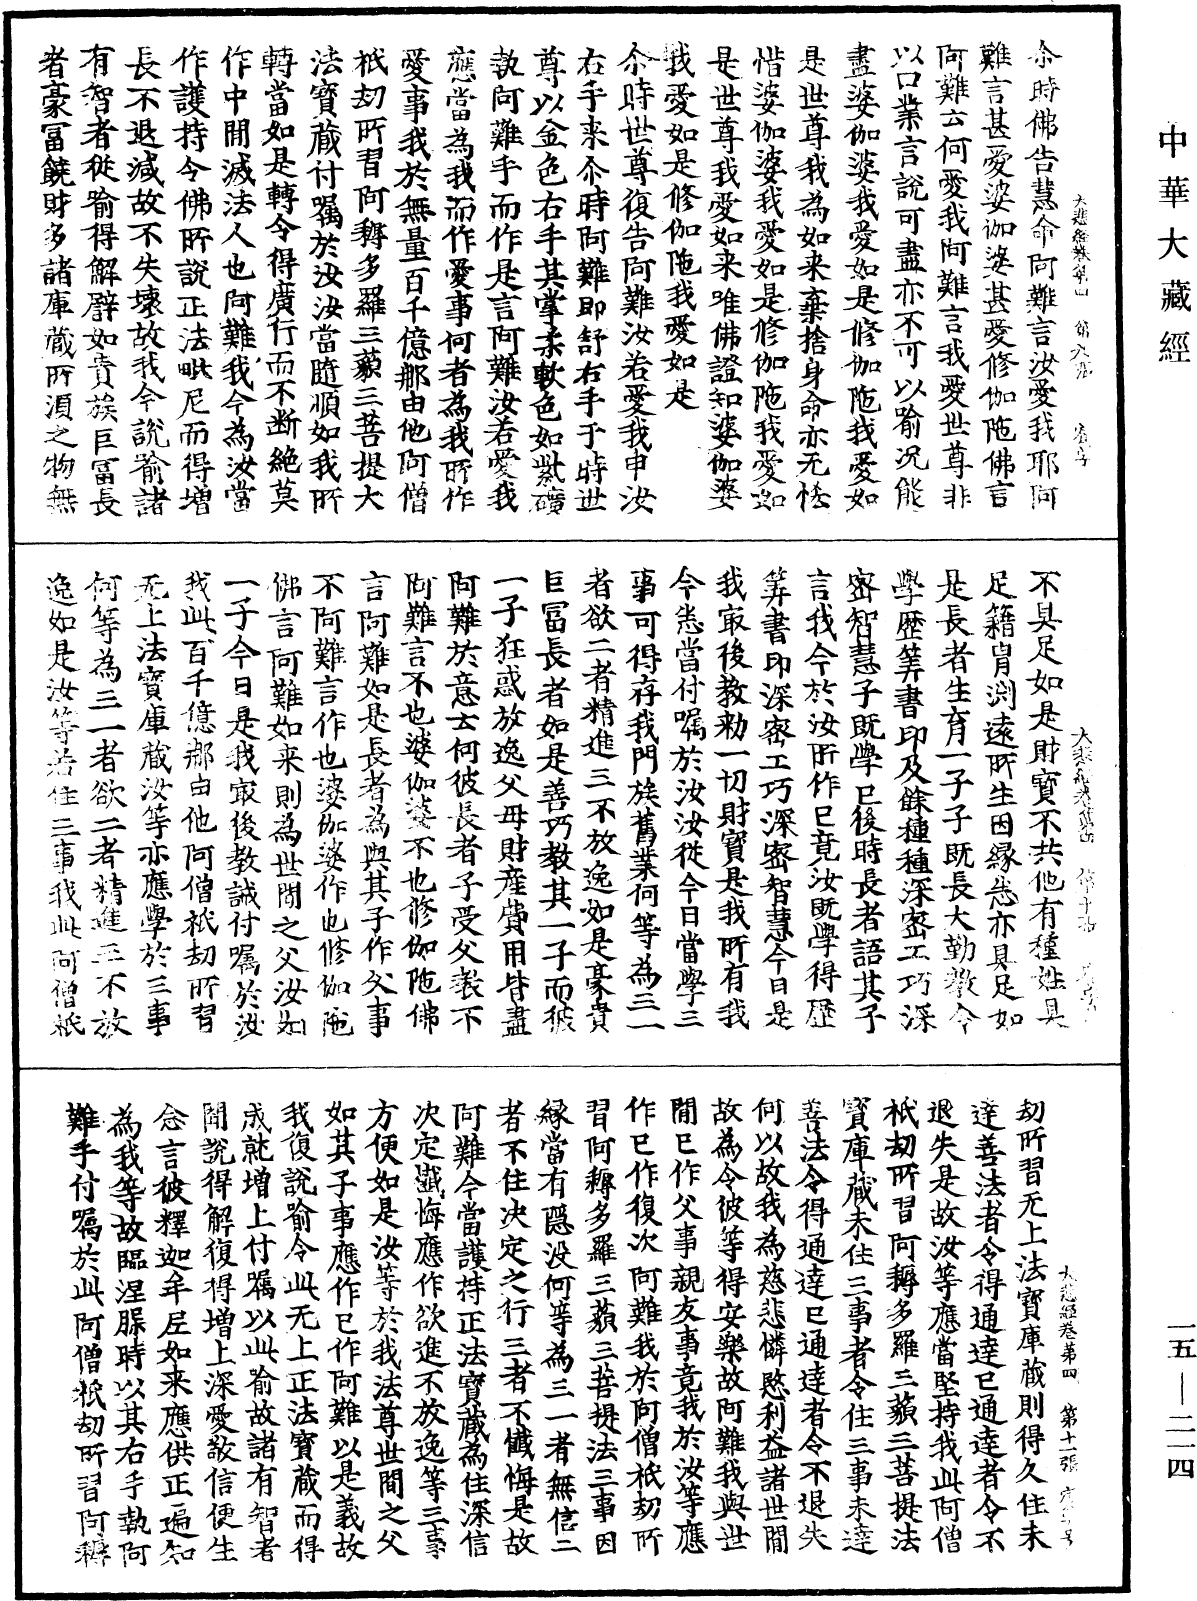 中華大藏經
尒時佛告慧命阿難言汝愛我耶阿
難言甚愛婆伽婆甚愛修伽陁佛言
阿難云何愛我阿難言我愛世尊非
以口業言說可盡亦不可以喻況能
盡婆伽婆我愛如是修伽陁我愛如
是世尊我為如来棄捨身命亦无悋
惜婆伽婆我愛如是修伽陁我愛如
是世尊我愛如来唯佛證知婆伽婆
我愛如是修伽陁我愛如是
尒時世尊復告阿難汝若愛我申汝
右手来尒時阿難即舒右手于時世
尊以金色右手其掌柔軟色如紫礦
執阿難手而作是言阿難汝若愛我
應當為我而作愛事何者為我所作
愛事我於無量百千億那由他阿僧
祇劫所習阿耨多羅三藐三菩提大
法寶藏付囑於汝汝當隨順如我所
轉當如是轉令得廣行而不断絶莫
作中間滅法人也阿難我今為汝當
作護持令佛所說正法毗尼而得增
長不退減故不失壞故我今說喻諸
有智者從喻得解譬如貴族巨富長
者豪富饒財多諸庫藏所須之物無
不具足如是財寶不共他有種姓具
足籍胄渕遠所生因緣悉亦具足如
是長者生育一子子既長大勤教令
學歷筭書印及餘種種深密工巧深
密智慧子既學已後時長者語其子
言我今於汝所作已竟汝既學得歷
筭書印深密工巧深密智慧今日是
我㝡後教勑一切財寶是我所有我
今悉當付囑於汝汝從今日當學三
事可得存我門族舊業何等為三一
者欲二者精進三不放逸如是豪貴
巨富長者如是善巧教其一子而彼
一子狂惑放逸父母財產費用皆盡
阿難於意云何彼長者子受父教不
阿難言不也婆伽婆不也修伽陁佛
言阿難如是長者為與其子作父事
不阿難言作也婆伽婆作也修伽陁
佛言阿難如来則為世間之父汝如
一子今日是我㝡後教誡付囑於汝
我此百千億那由他阿僧祇劫所習
无上法寶庫藏汝等亦應學於三事
何等為三一者欲二者精進三不放
逸如是汝等若住三事我此阿僧祇
劫所習无上法寶庫藏則得久住未
達善法者令得通達已通達者令不
退失是故汝等應當堅持我此阿僧
祇劫所習阿耨多羅三藐三菩提法
寶庫藏未住三事者令住三事未達
善法令得通達已通達者令不退失
何以故我為慈悲憐愍利益諸世間
故為令彼等得安樂故阿難我與世
間已作父事親友事竟我於汝等應
作已作復次阿難我於阿僧祇劫所
習阿耨多羅三藐三菩提法三事因
緣當有隱没何等為三一者無信二
者不住决定之行三者不懺悔是故
阿難今當護持正法寶藏為住深信
次定懺悔應作欲進不放逸等三事
方便如是汝等於我法尊世間之父
如其子事應作已作阿難以是義故
我復說喻令此无上正法寶藏而得
成就增上付囑以此喻故諸有智者
聞說得解復得增上深愛敬信便生
念言彼釋迦牟尼如来應供正遍知
為我等故臨涅槃時以其右手執阿
難手付囑於此阿僧祇劫所習阿耨
大悲經卷第四　第十一張
一五—二一四